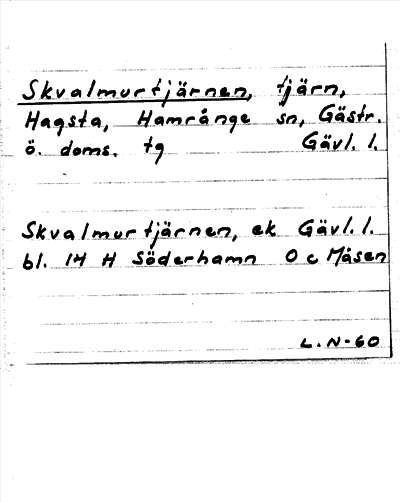 Skvalmurtjärnen, tjärn,
Hagsta, Hamrånge sn, Gästr.
ö. doms. tg Gävl. l.
Skvalmurtjärnen, ek Gävl. l.
bl. 14 H Söderhamn O c Måsen
L. N-60